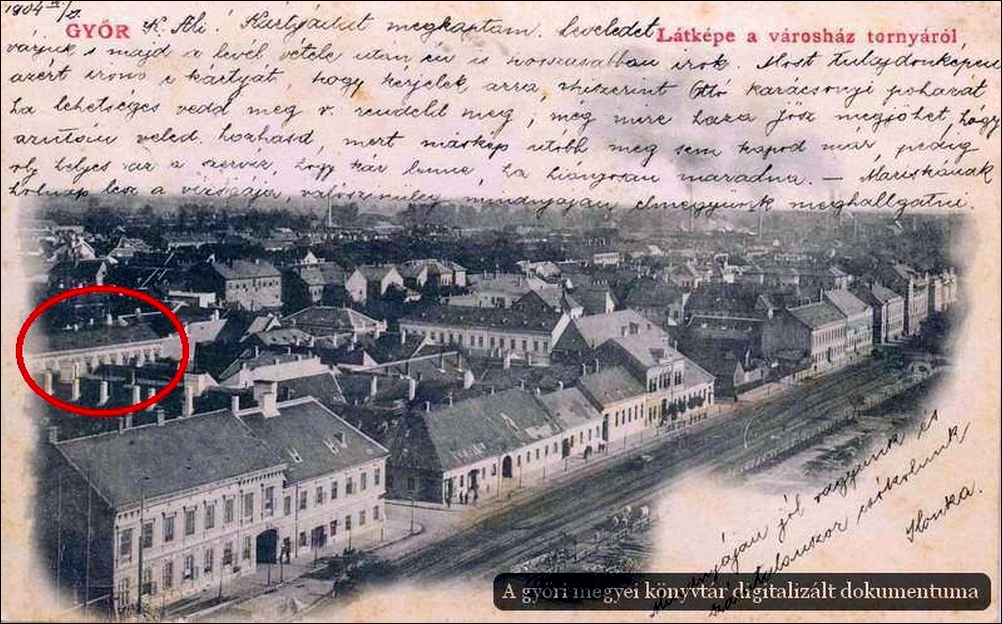 1904
GYŐR
K. Ali! Kártyádat megkaptam. Leveledet
Látképe a városház tornyáról,
várjuk s majd a levél vétele után én is hosszasabban irok. Most tulajdonképen
azért irom e kártyát, hogy kérjelek, arra, hiszerint Ottó karácsonyi poharát
ha lehetséges vedd meg v. rendeld meg, még mire haza jösz megjöhet, hogy
azután veled hozhasd, mert máskép utóbb meg sem kapod már, pedig
oly teljes az a szerviz, hogy kár lenne, ha hiányosan maradna. — Mariskának
holnap lesz a vizsgája, valószinüleg mindnyájan elmegyünk meghallgatni.
Mindnyájan jól vagyunk és
csókolunk
Ilonka.
A győri megyei könyvtár digitalizált dokumentuma